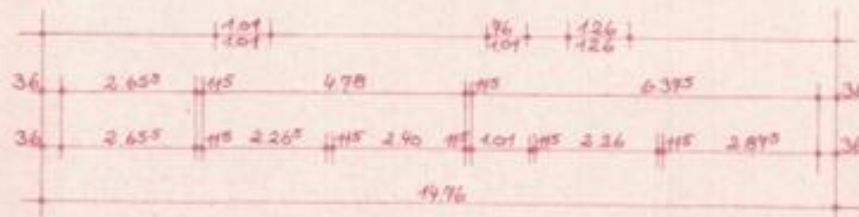 1.01 76 1.26
1.01 1.01 1.26
36 2.65⁵ 11⁵ 4.78 11⁵ 6.37⁵ 36
36 2.65⁵ 11⁵ 2.26⁵ 11⁵ 2.40 11⁵ 1.01 11⁵ 2.26 11⁵ 2.87⁵ 36
14.76